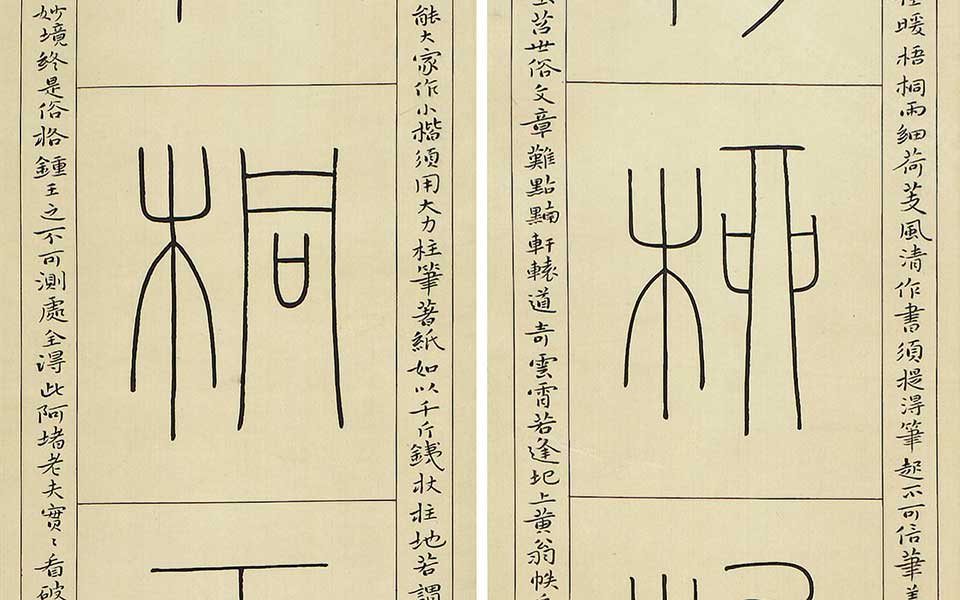 暖梧桐雨細荷芰風清作書須提得筆起不可信筆
桺
苔世俗文章難點黼軒轅道奇雲霄若逢圯上黃翁帙
能大家作小楷須用大力柱筆著紙如以千斤銕杖拄地若謂
桐
妙境終是俗格鍾王之不可測處全得此阿堵老夫實〻看破